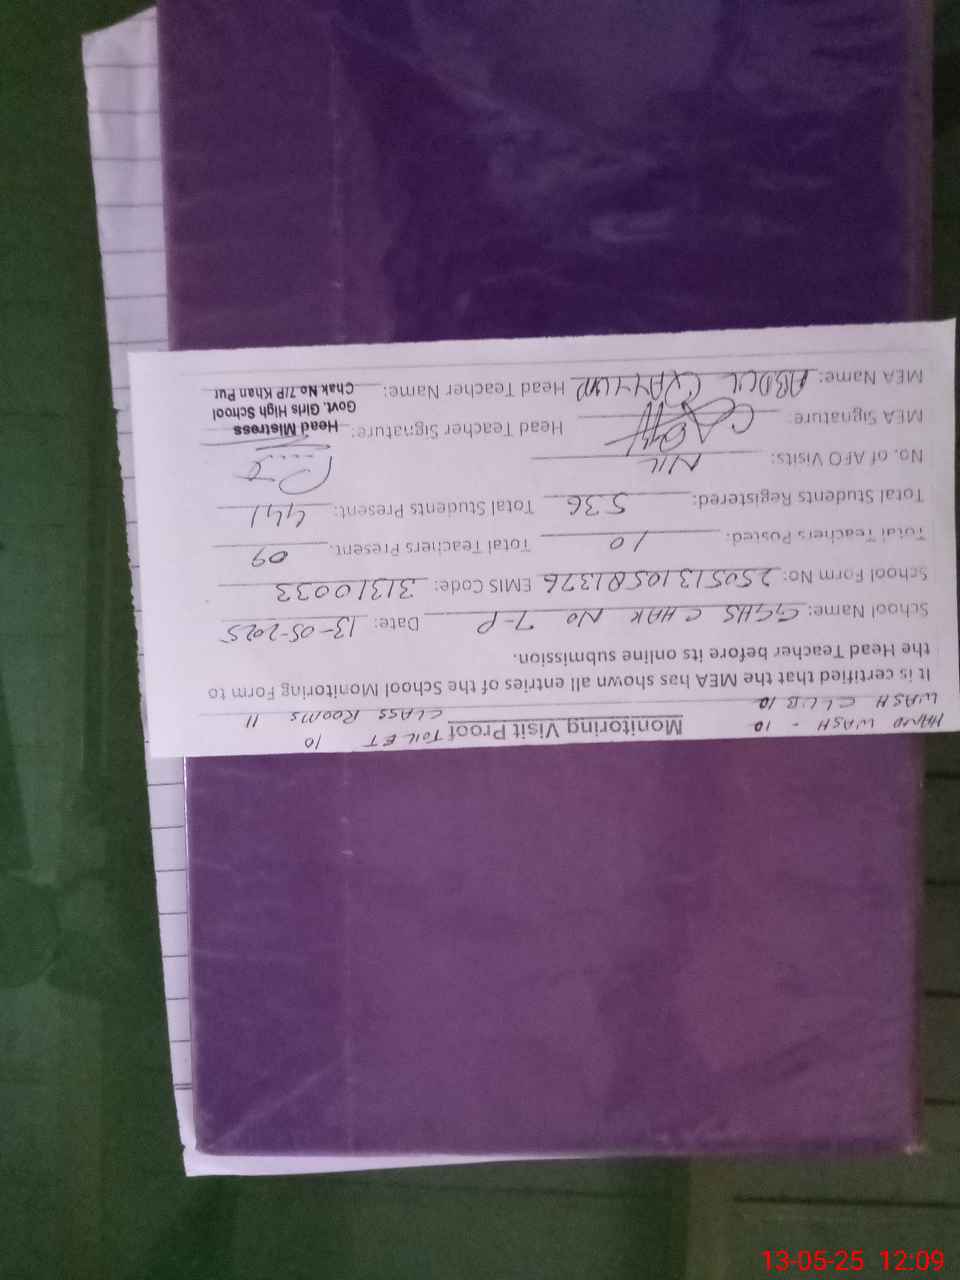 HAND WASH - 10 Monitoring Visit Proof TOILET 10
WASH CLUB 10 CLASS ROOMS 11
It is certified that the MEA has shown all entries of the School Monitoring Form to
the Head Teacher before its online submission.
School Name: GGHS CHAK NO 7-P Date: 13-05-2025
School Form No: 2505131058 1376 EMIS Code: 31310033
Total Teachers Posted: 10 Total Teachers Present: 09
Total Students Registered: 536 Total Students Present: 441
No. of AFO Visits: NIL
MEA Signature: Head Teacher Signature: Head Mistress
Govt. Girls High School
MEA Name: ABDUL QAYYUM Head Teacher Name: Chak No 7/P Khan Pur
13-05-25 12:09